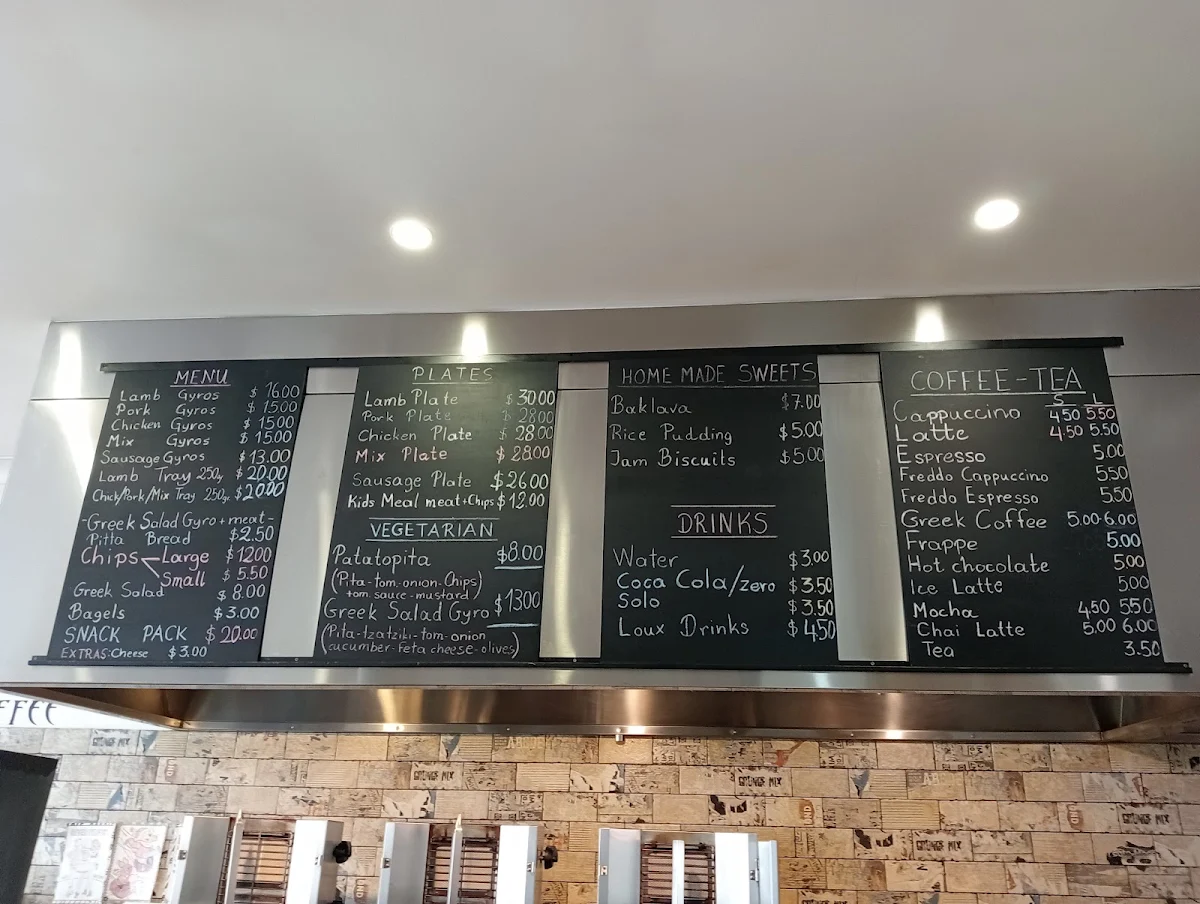 MENU
Lamb Gyros $ 16.00
Pork Gyros $ 15.00
Chicken Gyros $ 15.00
Mix Gyros $ 15.00
Sausage Gyros $ 13.00
Lamb Tray 250g $ 20.00
Chick/Pork/Mix Tray 250gr $ 20.00
-Greek Salad Gyro + meat-
Pitta Bread $ 2.50
Chips Large $ 12.00
Small $ 5.50
Greek Salad $ 8.00
Bagels $ 3.00
SNACK PACK $ 20.00
EXTRAS: Cheese $ 3.00
PLATES
Lamb Plate $ 30.00
Pork Plate $ 28.00
Chicken Plate $ 28.00
Mix Plate $ 28.00
Sausage Plate $ 26.00
Kids Meal meat+Chips $ 12.00
VEGETARIAN
Patatopita $8.00
(Pita-tom-onion-Chips)
tom.sauce-mustard)
Greek Salad Gyro $ 13.00
(Pita-tzatziki-tom-onion
cucumber-Feta cheese-olives)
HOME MADE SWEETS
Baklava $7.00
Rice Pudding $5.00
Jam Biscuits $5.00
DRINKS
Water $3.00
Coca Cola/zero $3.50
Solo $3.50
Loux Drinks $4.50
COFFEE-TEA
S L
Cappuccino 4.50 5.50
Latte 4.50 5.50
Espresso 5.00
Freddo Cappuccino 5.50
Freddo Espresso 5.50
Greek Coffee 5.00-6.00
Frappe 5.00
Hot chocolate 5.00
Ice Latte 5.00
Mocha 4.50 5.50
Chai Latte 5.00 6.00
Tea 3.50
FFEE
GRUNGE MIX
GRUNGE MIX
GRUNGE MIX
GRUNGE MIX
GRUNGE MIX